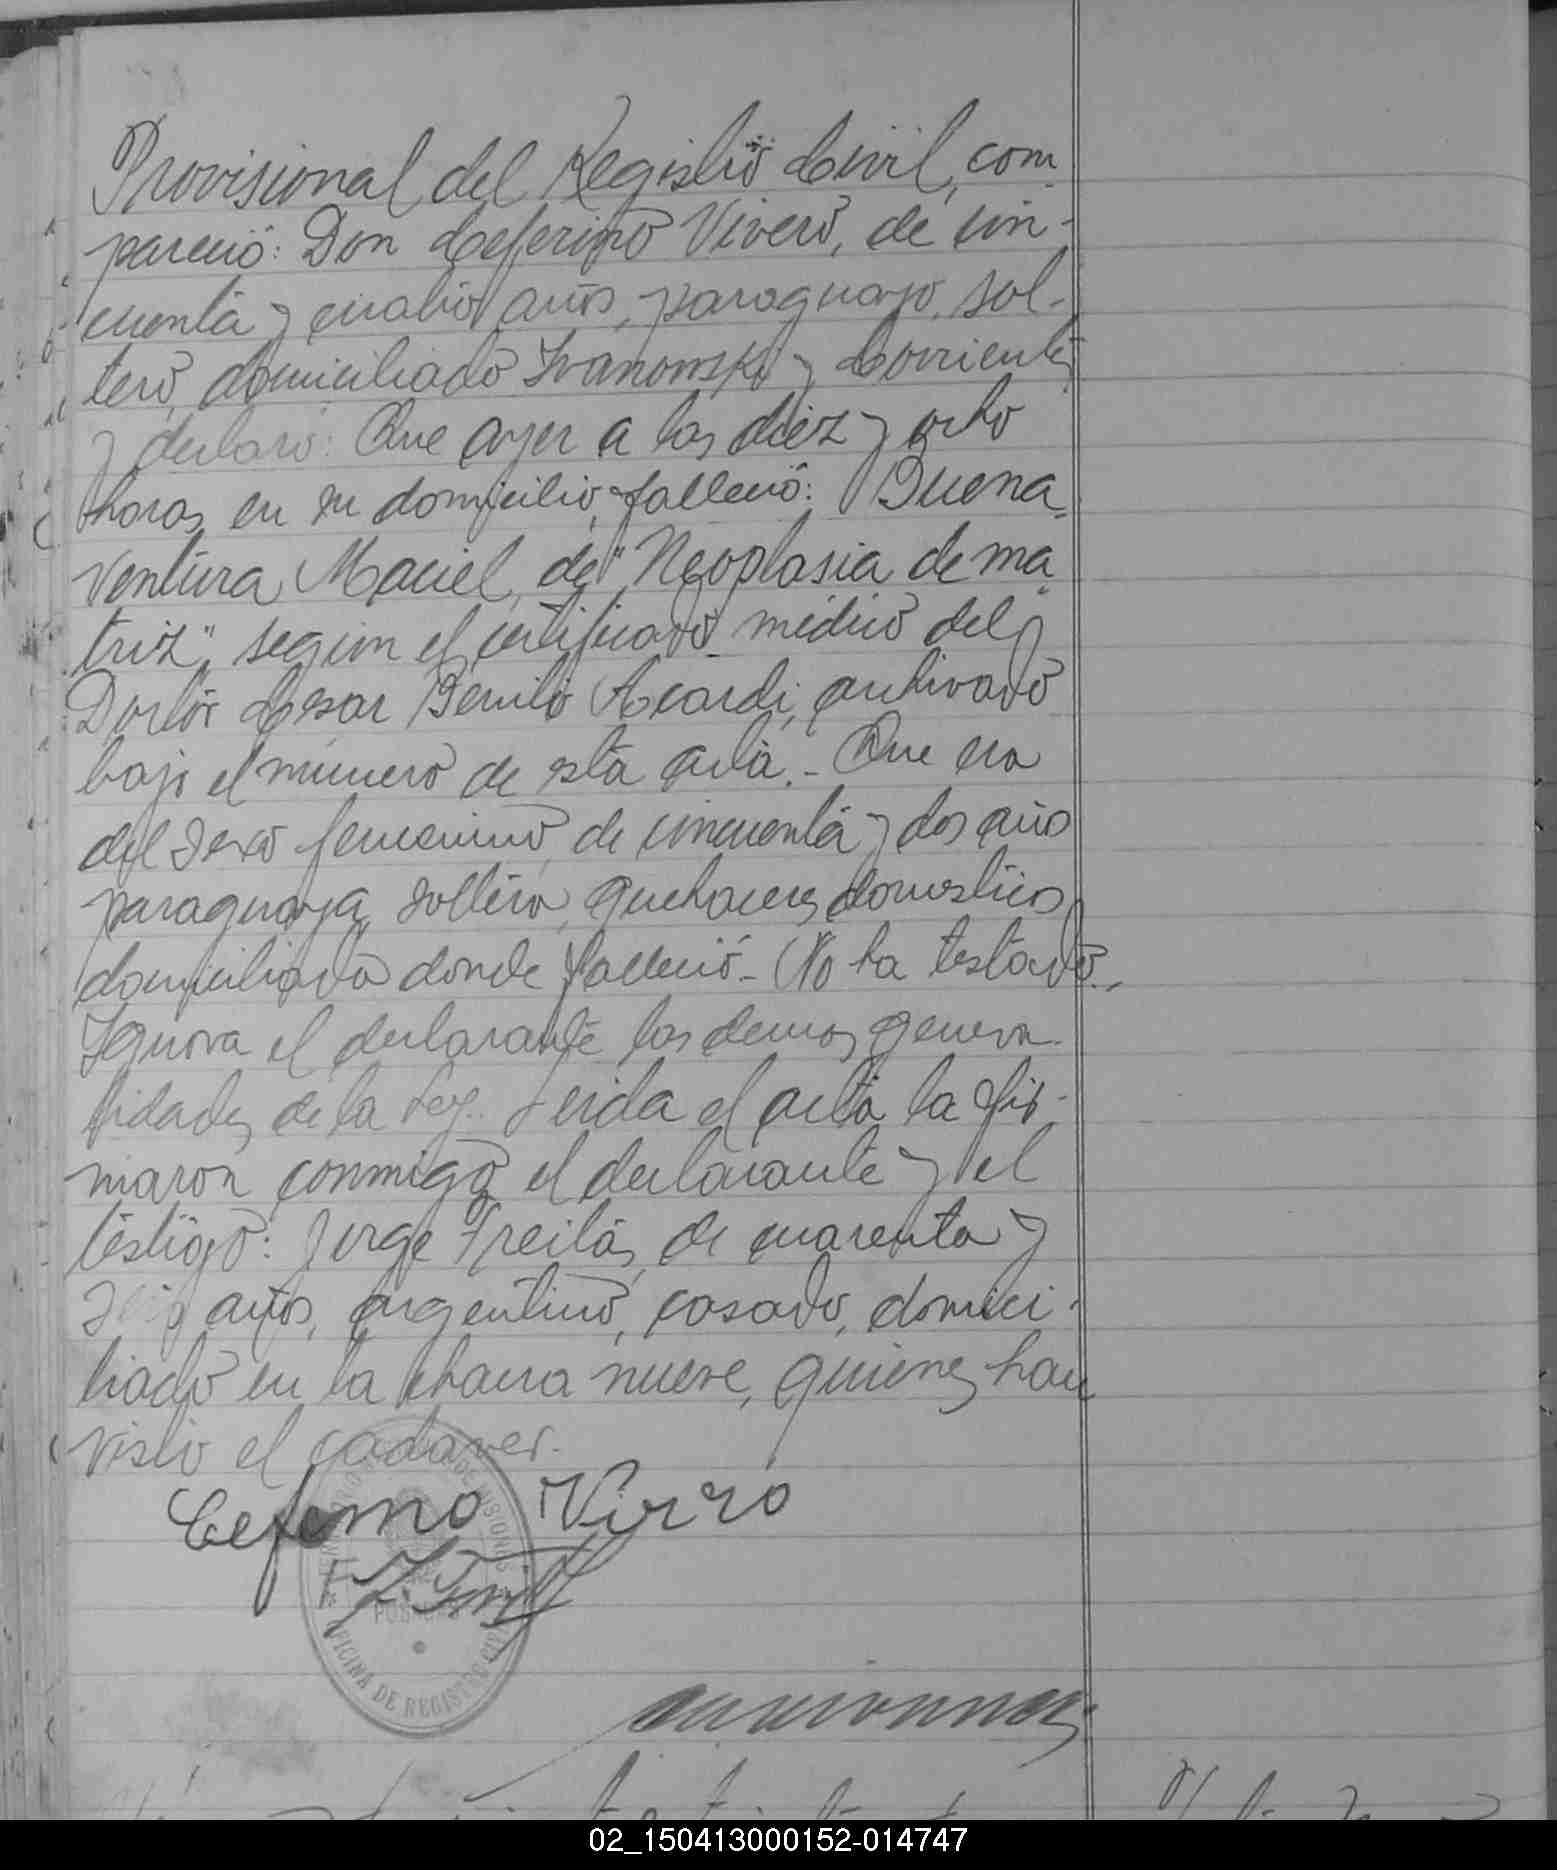 Provisional del Registro Civil, com-
pareció: Don Ceferino Vivero, de cin-
cuenta y cuatro años, paraguayo, sol-
tero, domiciliado Ivanowski y Corrientes
y declaró: Que ayer a las diez y ocho
horas, en su domicilio, falleció: Buena-
ventura Maciel, de "Neoplasia de ma-
triz", segun el certificado medico del
Doctor Cesar Benito Acardi, archivado
bajo el número de esta acta.- Que era
del sexo femenino, de cincuenta y dos años
paraguaya, soltera, quehaceres domesticos
domiciliada donde falleció.- No ha testado.-
Ignora el declarante las demas genera-
lidades de la Ley. Leida el acta la fir-
maron conmigo el declarante y el
testigo: Jorge Freitas, de cuarenta y
seis años, argentino, casado, domici-
liado en la chacra nueve, quienes han
visto el cadaver.-
Ceferino Virro
OFICINA DE REGISTRO CIVIL
POSADAS
02_150413000152-014747